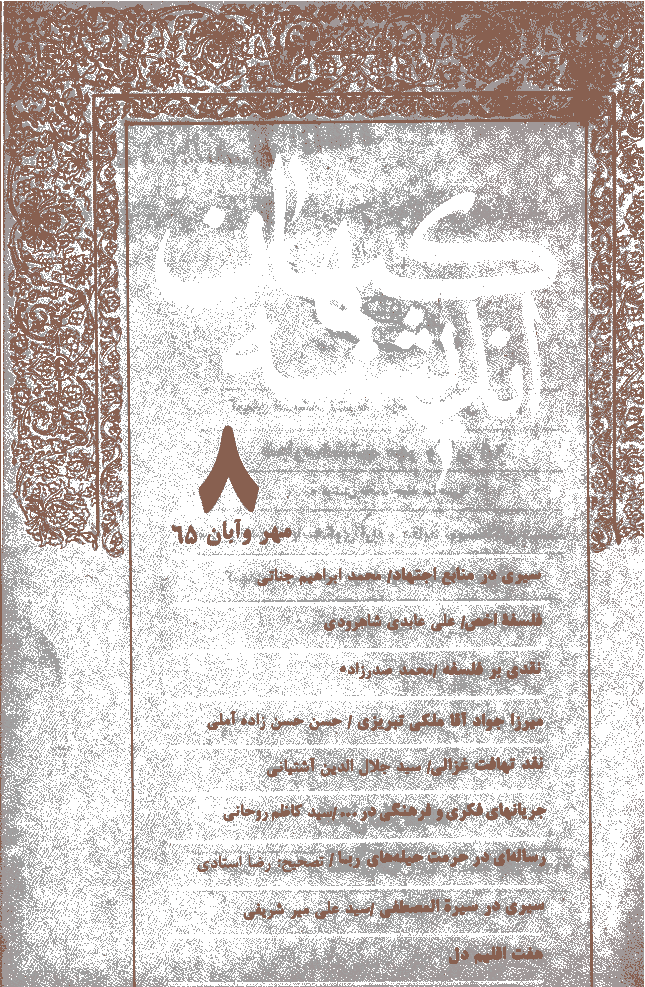 کیهان
اندیشه
۸
مهر وآبان ۶۵
سیری در منابع اجتهاد/ محمد ابراهیم جناتی
فلسفهٔ اخص/ علی عابدی شاهرودی
نقدی بر فلسفه /محمد صدرزاده
میرزا جواد آقا ملکی تبریزی / حسن حسن زاده آملی
نقد تهافت غزالی/ سید جلال الدین آشتیانی
جریانهای فکری و فرهنگی در .../سید کاظم روحانی
رساله‌ای در حرمت حیله‌های ربا/ تصحیح: رضا استادی
سیری در سیرة المصطفی /سید علی میر شریفی
هفت اقلیم دل